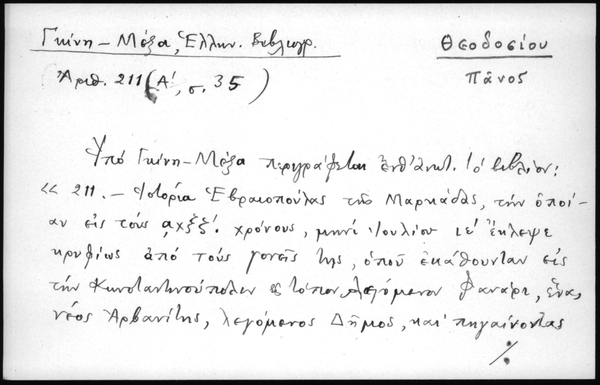 Γκίνη – Μέξα, Ἑλλην. Βιβλιογρ.
Θεοδοσίου
Ἀριθ. 211 (Α', σ. 35)
Πάνος
Ὑπό Γκίνη–Μέξα περιγράφεται τό βιβλίον:
« 211. – Ἱστορία Ἑβραιοπούλας τῆς Μαρκάδας, τήν ὁποί-
αν εἰς τούς ͵αχξξ'. χρόνους, μηνί Ἰουλίου ιε' ἔκλεψε
κρυφίως ἀπό τούς γονεῖς της, ὁπού ἐκάθουνταν εἰς
τήν Κωνσταντινούπολιν εἰς τόπον λεγόμενον Φανάρι, ἕνας
νέος Ἀρβανίτης, λεγόμενος Δῆμος, καί πηγαίνοντας
./.